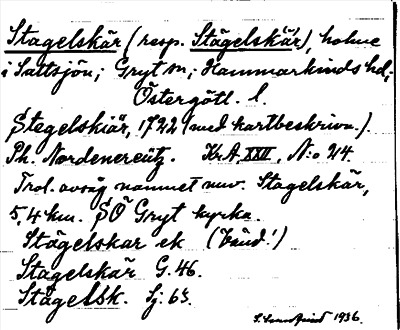 Stagelskär (resp. Stägelskär), holme
i Sattsjön; Gryt sn; Hammarkinds hd;
Östergötl. l.
Stegelskiär, 1722 (med kartbeskrivn.).
Ph. Nordenereütz. KrA XXII, N:o 24.
Trol. avsåg namnet nuv. Stagelskär,
5,4 km. SÖ Gryt kyrka.
Stägelskar ek
Stagelskär G. 46.
Stägelsk. Sj. 63.
1936.